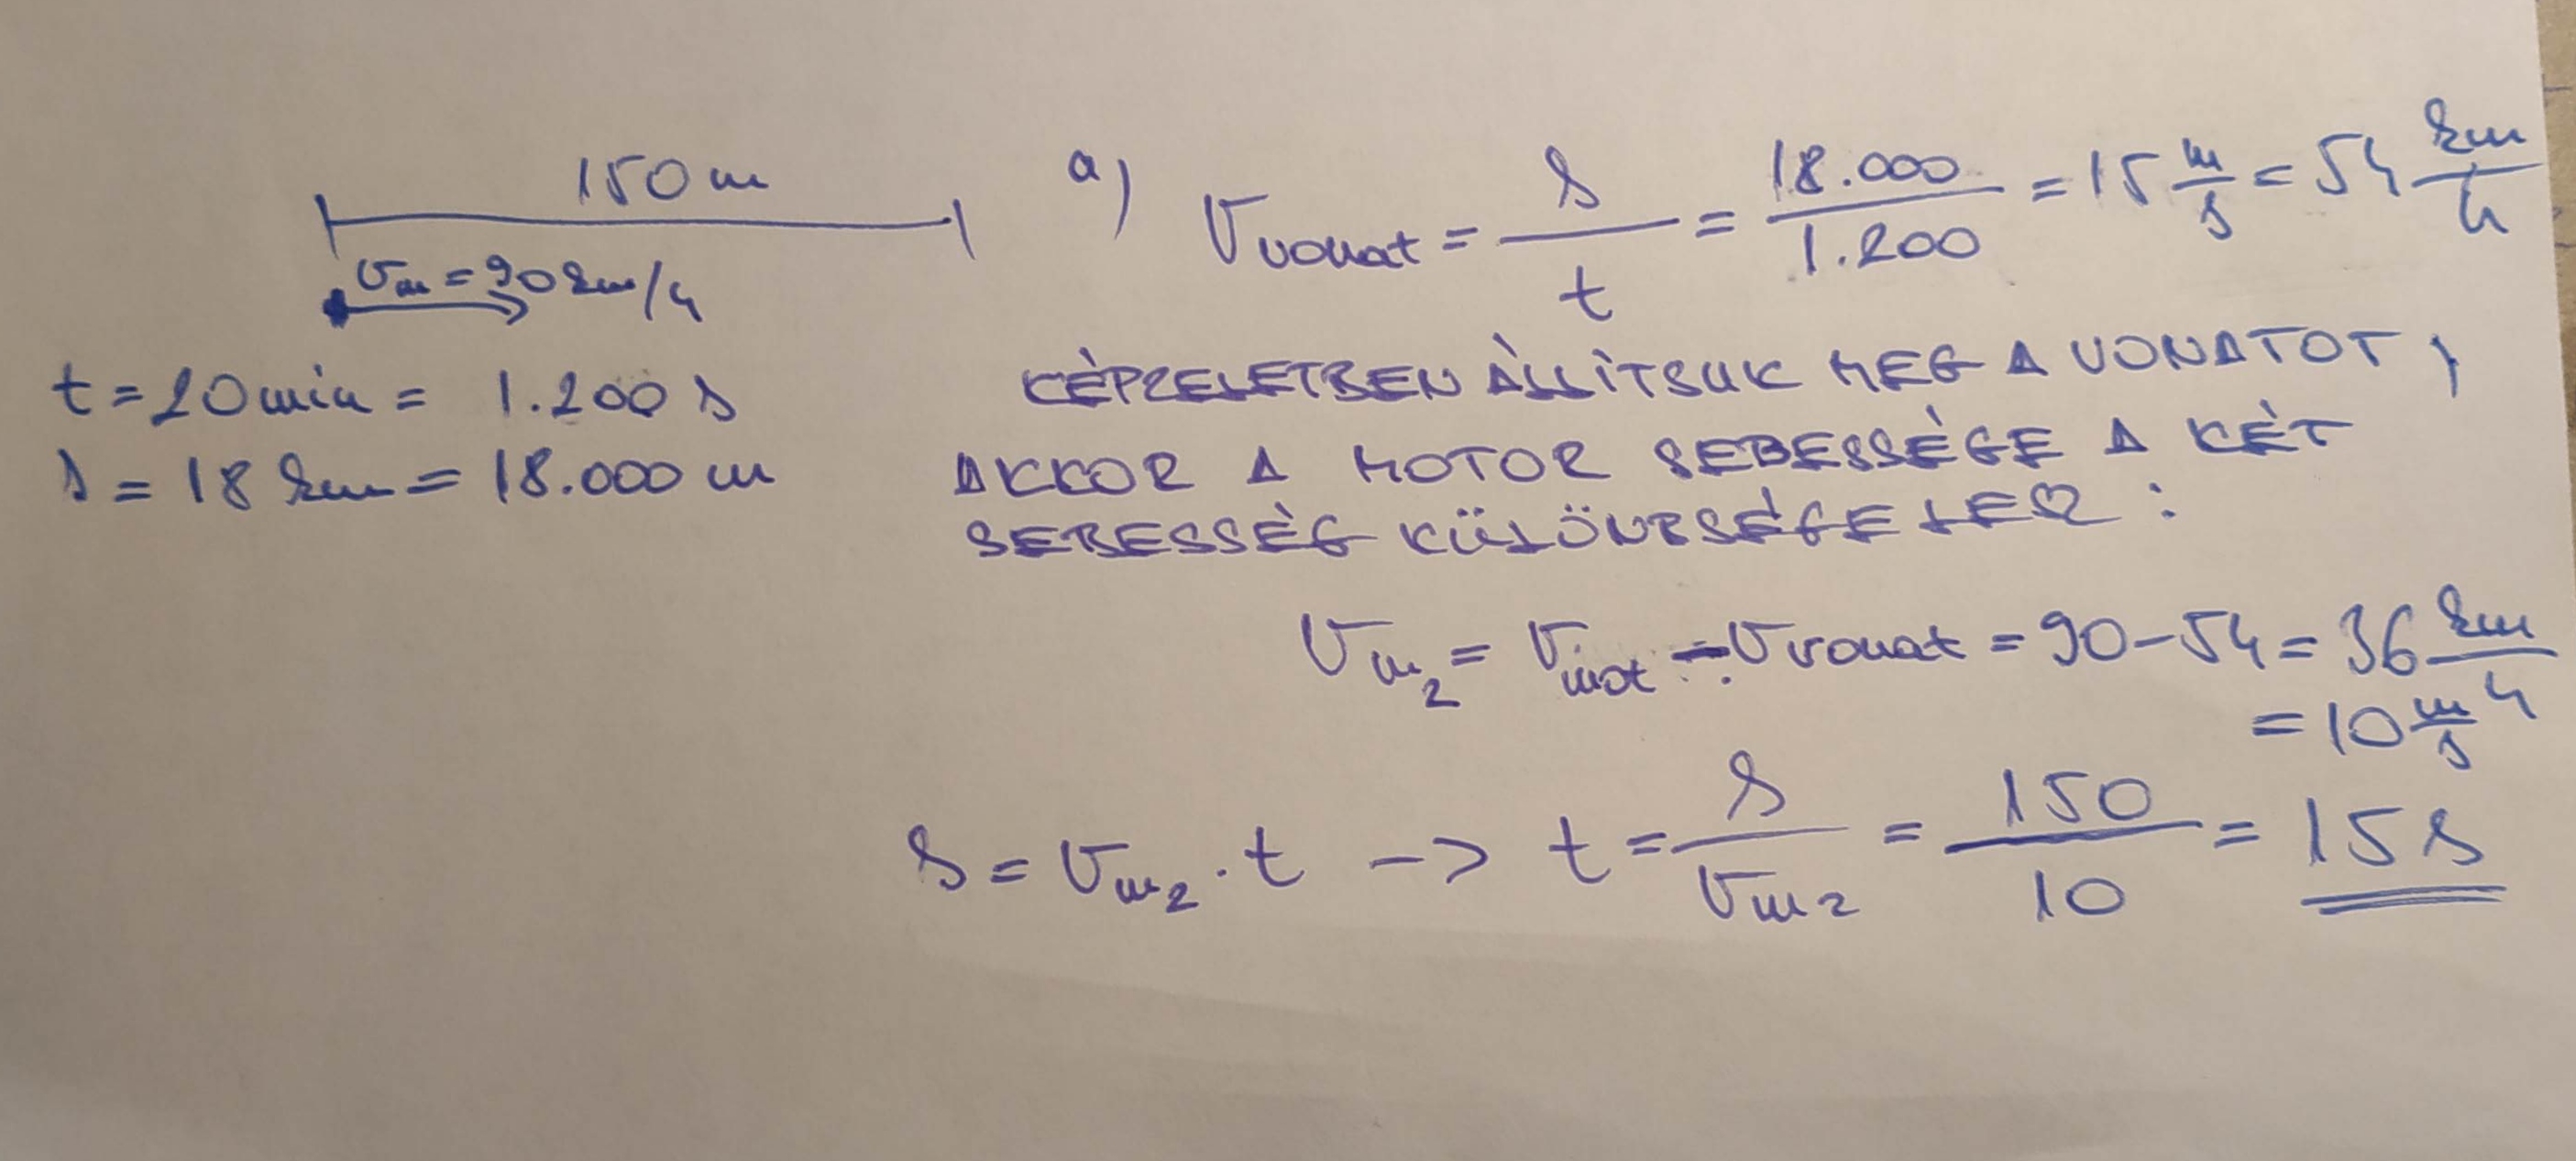 150 m
vₘ = 90 km/h
t = 20 min = 1.200 s
s = 18 km = 18.000 m
a) v_vonat = s/t = 18.000/1.200 = 15 m/s = 54 km/h
KÉPZELETBEN ÁLLÍTSUK MEG A VONATOT,
AKKOR A MOTOR SEBESSÉGE A KÉT
SEBESSÉG KÜLÖNBSÉGE LESZ:
vₘ₂ = v_mot - v_vonat = 90 - 54 = 36 km/h
= 10 m/s
s = vₘ₂ · t -> t = s/vₘ₂ = 150/10 = 15 s